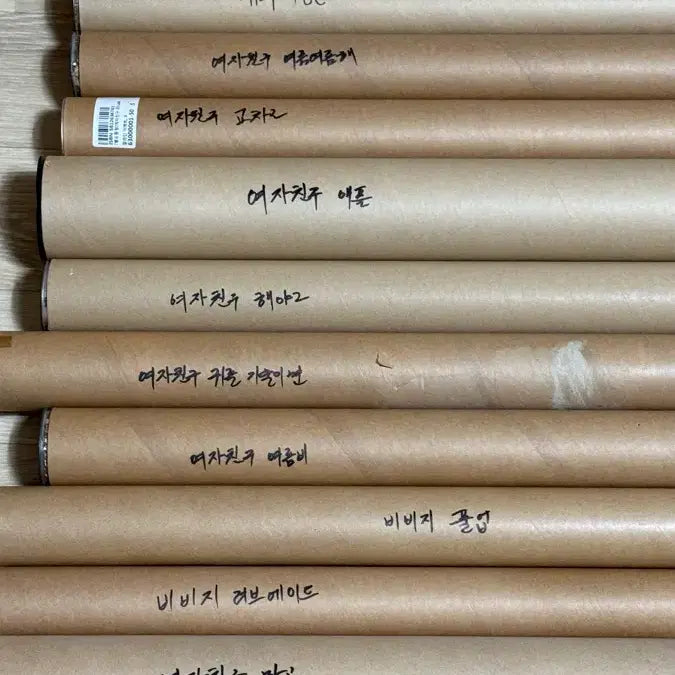 여자친구 여름여름해
여자친구 교차2
여자친구 애플
여자친구 해야2
여자친구 귀를 기울이면
여자친구 여름비
비비지 풀업
비비지 러브에이드
여자친구